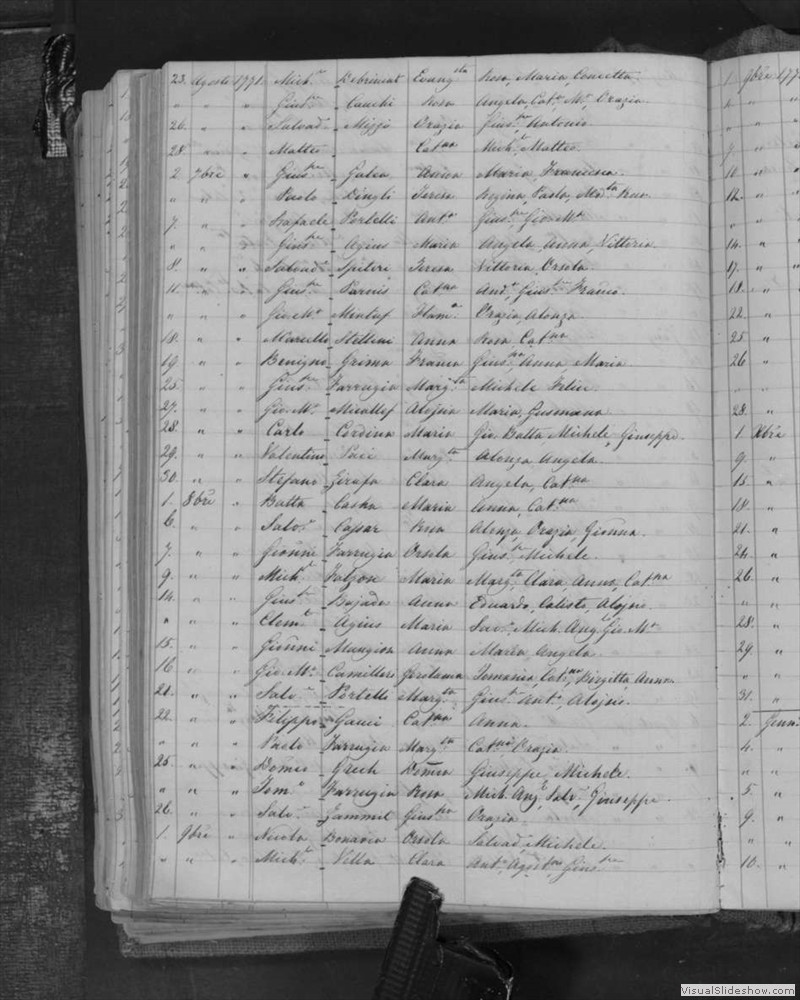 23. Agosto 1771. Mich.e Debrincat Evang.sta Rosa, Maria, Concetta.
" " " Gius.e Cauchi Rosa Angela, Cat.a M.a Orazio.
26. " " Salvad.e Mizzi Orazia Gius.pe Antonio
28. " " Matteo Cat.na Mich.l Matteo.
2 7bre " Gius.pe Galea Anna Maria, Francesca
" " " Paolo Dingli Teresa Regina, Paola, Rosa.
7. " " Rafaele Portelli Ant.a Gius.pe Gio. M.a
" " " Gius.pe Agius Maria Angela, Anna, Vittoria
8. " " Salvad.e Spiteri Teresa Vittoria, Orsola.
11. " " Gius.pe Parnis Cat.na And.a, Gius.pe Franco.
" " " Gio. M.a Mintuf Flam.a Orazio, Alonza.
18. " " Marcello Stellini Anna Rosa Cat.na
19 " " Benigno Grima Franca Gius.pa, Anna, Maria
25. " " Gius.pe Farrugia Marg.ta Michele Felice
27. " " Gio. M.a Micallef Aloisia Maria, Gusmana
28. " " Carlo Cordina Maria Gio. Batta, Michele, Giuseppe.
29. " " Valentino Paci Marg.ta Alonza Angela.
30. " " Stefano Zirafa Clara Angela, Cat.na
1. 8bre " Batta Casha Maria Anna, Cat.na
6. " " Salv.e Cassar Rosa Alonza, Orazio, Gionna.
7. " " Gionni Farrugia Orsola Gius.pe Michele.
9. " " Mich.l Falzon Maria Marg.ta Clara, Anna, Cat.na
14. " " Gius.pe Bajada Anna Eduardo, Calisto, Aloisio.
" " " Clem.te Agius Maria Sav.o, Mich. Ang.lo Gio. M.a
15. " " Gionni Mangion Anna Maria Angela.
16. " " Gio. M.a Camilleri Gerolama Tomasia, Cat.na, Birgitta, Anna.
21. " " Salv.e Portelli Marg.ta Gius.pe Ant.o, Aloisio.
22. " " Filippo Gauci Cat.na Anna.
" " " Paolo Farrugia Marg.ta Cat.na Orazio.
25. " " Domco Grech Domca Giuseppe, Michele.
" " " Tom.o Farrugia Rosa Mich. Ang.o, Salv.e, Giuseppe.
26. " " Salv.e Zammit Gius.pa Orazio.
1. 9bre " Nicola Bonavia Orsola Salvad.e Michele.
" " " Mich.l Vella Clara Ant.o, Agost.no Gius.pe
1. 9bre 1771
" "
9 "
10. "
12. "
" "
14. "
17. "
18. "
22. "
25 "
26 "
" "
28. "
1. Xbre
9. "
15. "
18. "
21. "
24. "
26. "
" "
28. "
29. "
" "
31. "
2. Genn.
4. "
" "
5. "
9. "
" "
10. "
VisualSlideshow.com